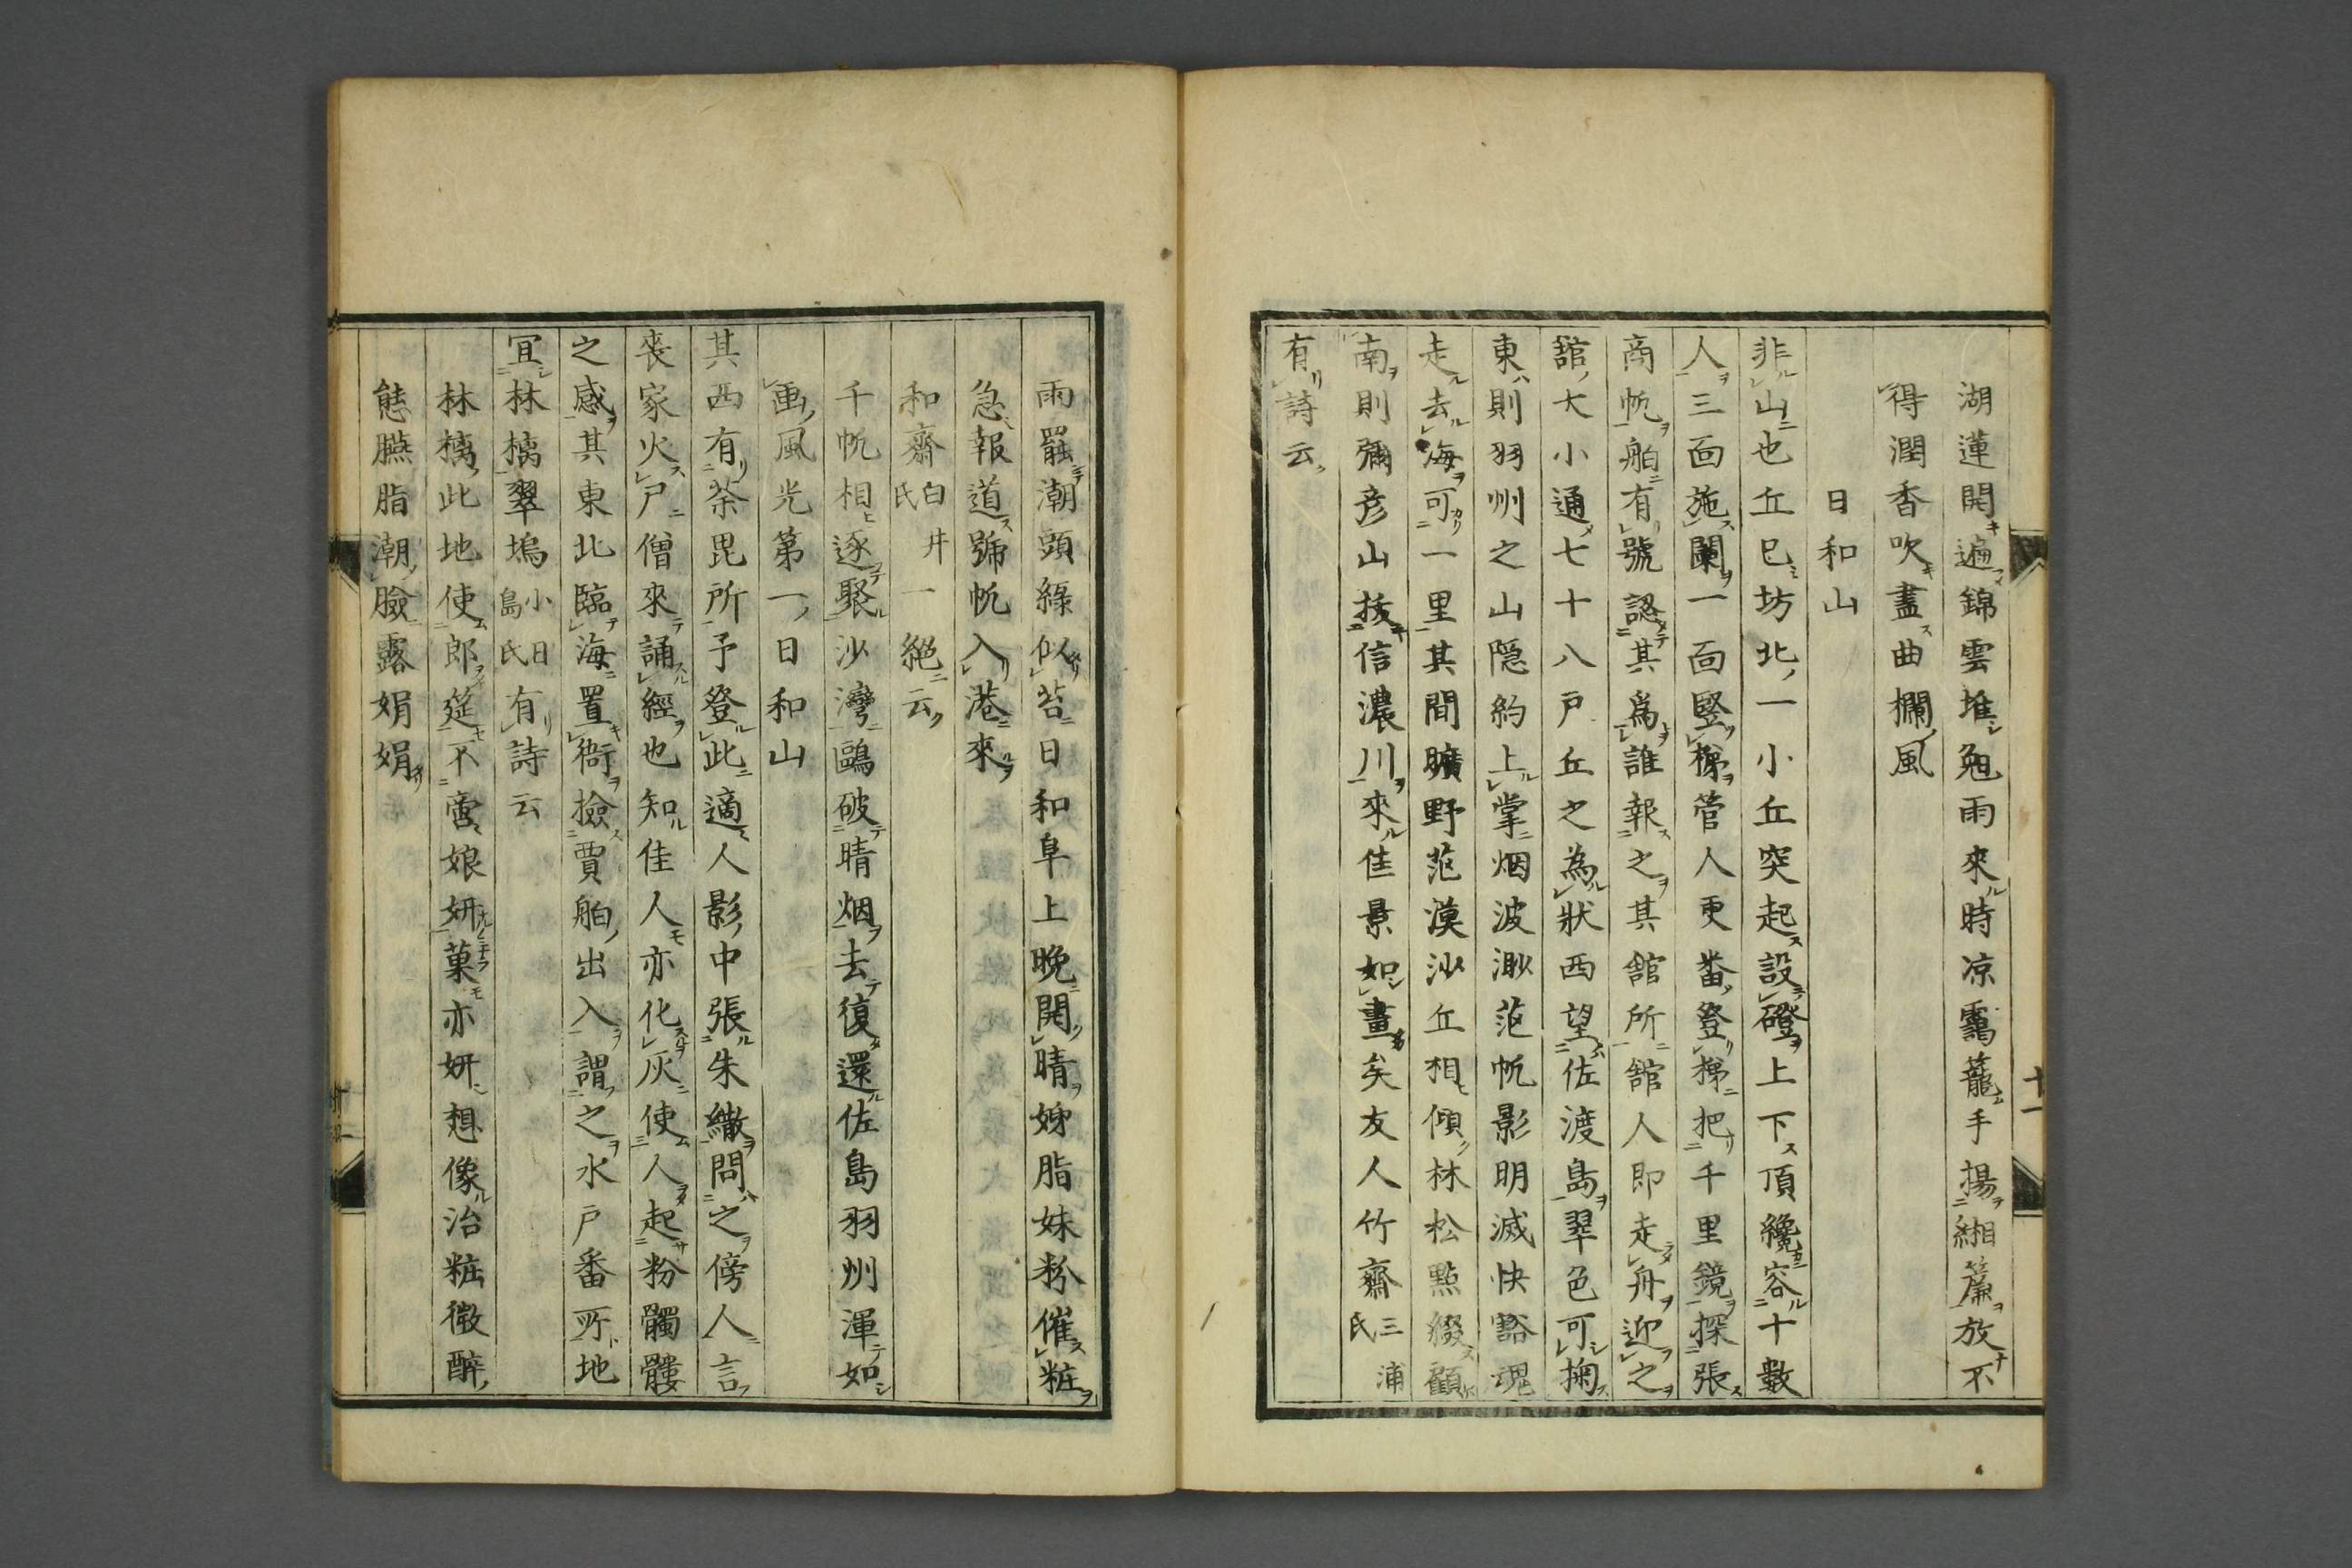 湖蓮開遍錦雲堆兔雨來時凉靄籠手揚緗簾放不
得潤香吹盡曲欄風
日和山
非山也丘巳坊北一小丘突起設磴上下頂纔容十數
人三面施闌一面竪梯管人更番登梯把千里鏡探張
商帆舶有號認其爲誰報之其舘所舘人即走舟迎之
舘大小通七十八戸丘之為狀西望佐渡島翠色可掬
東則羽州之山隠約上掌烟波渺茫帆影明滅快豁魂
走去海可一里其間曠野茫漠沙丘相傾林松點綴顧
南則彌彦山挾信濃川來佳景如畫矣友人竹齋三浦氏
有詩云
十一
雨罷潮頭綠似苔日和阜上晩開晴姊脂妹粉催粧
急報道號帆入港來
和齋白井氏一絕云
千帆相逐聚沙灣鷗破晴烟去復還佐島羽州渾如
画風光第一日和山
其西有荼毘所予登此適人影中張朱繖問之傍人言
喪家火尸僧來誦經也知佳人亦化灰使人起粉髑髏
之感其東北臨海置衙撿賈舶出入謂之水戸番所地
冝林檎翠塢小島日氏有詩云
林檎此地使郎筵不啻娘妍菓亦妍想像治粧微醉
態臙脂潮臉露娟娟